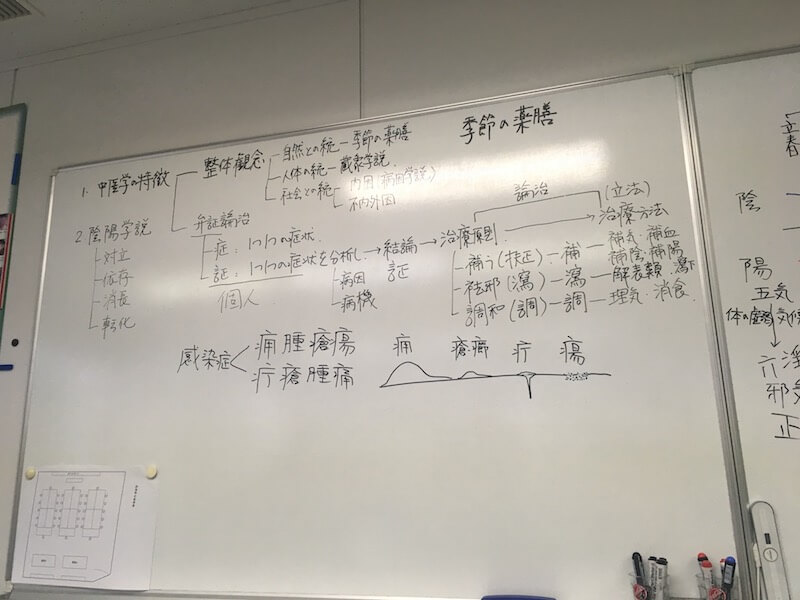 季節の薬膳
1. 中医学の特徴
整体観念
自然との統一 季節の薬膳
人体の統一 臓象学説
社会との統一 内因(病因学説)
不内外因
弁証論治
症:1つ1つの症状
証:1つ1つの症状を分析し→結論→治療原則→治療方法
個人
病因
病機
証
論治
(立法)
補う(扶正)―補―補気・補血
補陰・補陽
祛邪(瀉)―瀉―解表類・瀉下
調和(調)―調―理気・消食
2 陰陽学説
対立
依存
消長
転化
感染症
瘡瘍
疔瘡腫痛
疔
瘍
立春
陰
陽
五気
体の
気候
六淫
邪気
正